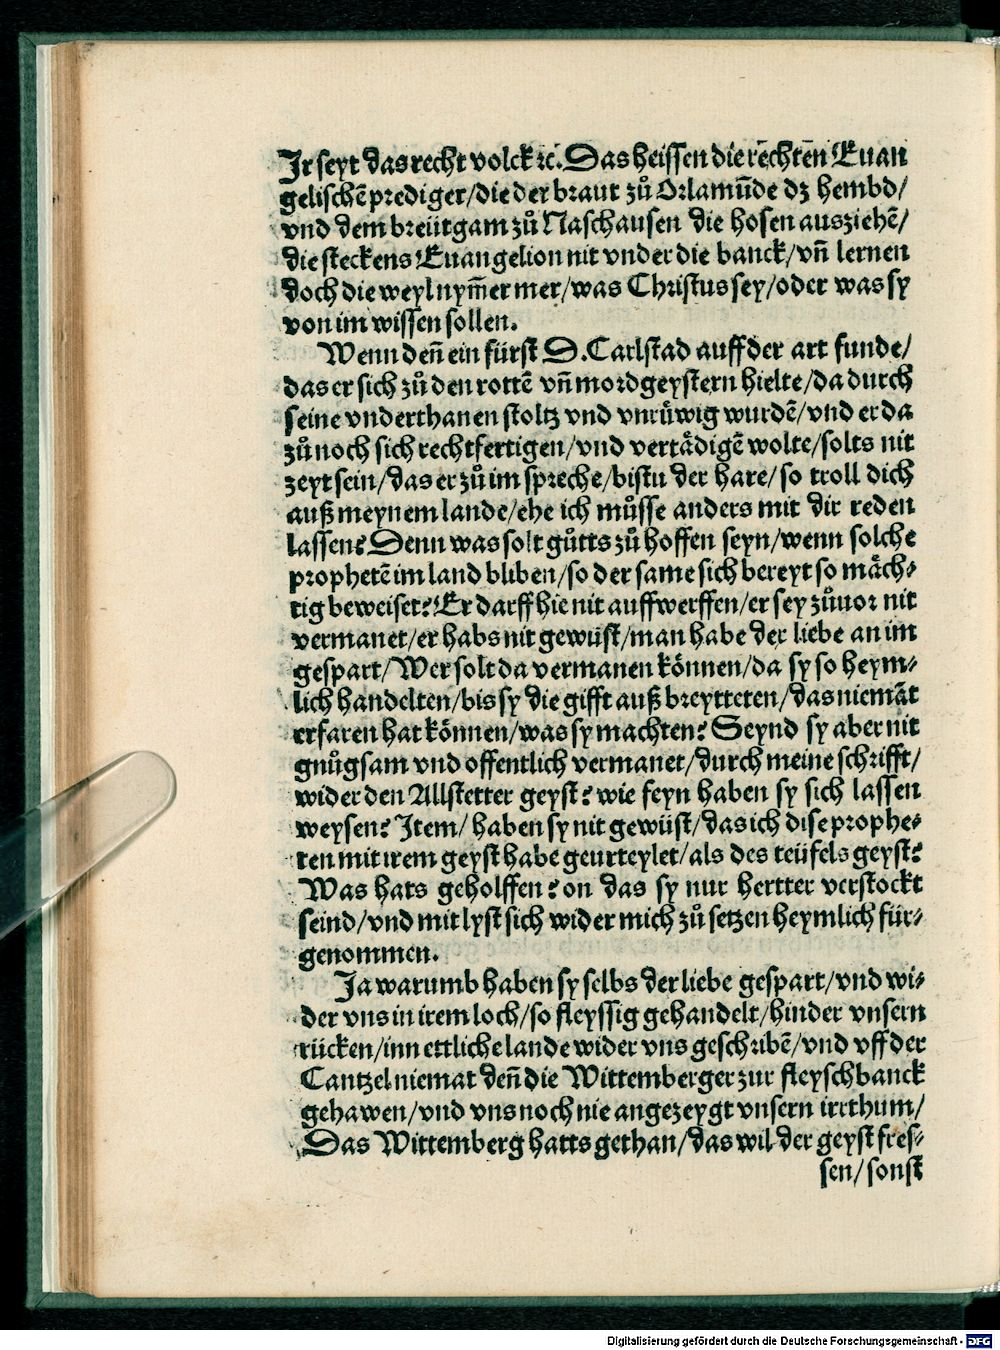 Jr seyt das recht volck ⁊c̄. Das heissen die rechten Euan
gelischẽ prediger/die der braut zů Orlamũde dz hembd/
vnd dem breütgam zů Naschausen die hosen ausziehẽ/
die steckens Euangelion nit vnder die banck/vñ lernen
doch die weyl nym̃er mer/was Christus sey/oder was sy
von im wissen sollen.
Wenn deñ ein fürst D. Carlstad auff der art funde/
das er sich zů den rottẽ vñ mordgeystern hielte/da durch
seine vnderthanen stoltz vnd vnrüwig wurdẽ/vnd er da
zů noch sich rechtfertigen/vnd vertädigẽ wolte/solts nit
zeyt sein/das er zů im spreche/bistu der hare/so troll dich
auß meynem lande/ehe ich můsse anders mit dir reden
lassen? Denn was solt gůtts zů hoffen seyn/wenn solche
prophetẽ im land bliben/so der same sich bereyt so mäch⸗
tig beweiset? Er darff hie nit auffwerffen/er sey zůuor nit
vermanet/er habs nit gewüst/man habe der liebe an im
gespart/Wer solt da vermanen können/da sy so heym⸗
lich handelten/bis sy die gifft auß breytteten/das niemãt
erfaren hat können/was sy machten? Seynd sy aber nit
gnůgsam vnd offentlich vermanet/durch meine schrifft/
wider den Allstetter geyst? wie feyn haben sy sich lassen
weysen? Item/haben sy nit gewüst/das ich dise prophe⸗
ten mit irem geyst habe geurteylet/als des teüfels geyst?
Was hats geholffen? on das sy nur hertter verstockt
seind/vnd mit lyst sich wider mich zů setzen heymlich für⸗
genommen.
Ja warumb haben sy selbs der liebe gespart/vnd wi⸗
der vns in irem loch/so fleyssig gehandelt/hinder vnsern
rücken/inn ettliche lande wider vns geschribẽ/vnd vff der
Cantzel niemat deñ die Wittemberger zur fleyschbanck
gehawen/vnd vns noch nie angezeygt vnsern irrthum/
Das Wittemberg hatts gethan/das wil der geyst fres⸗
sen/sonst
Digitalisierung gefördert durch die Deutsche Forschungsgemeinschaft - DFG